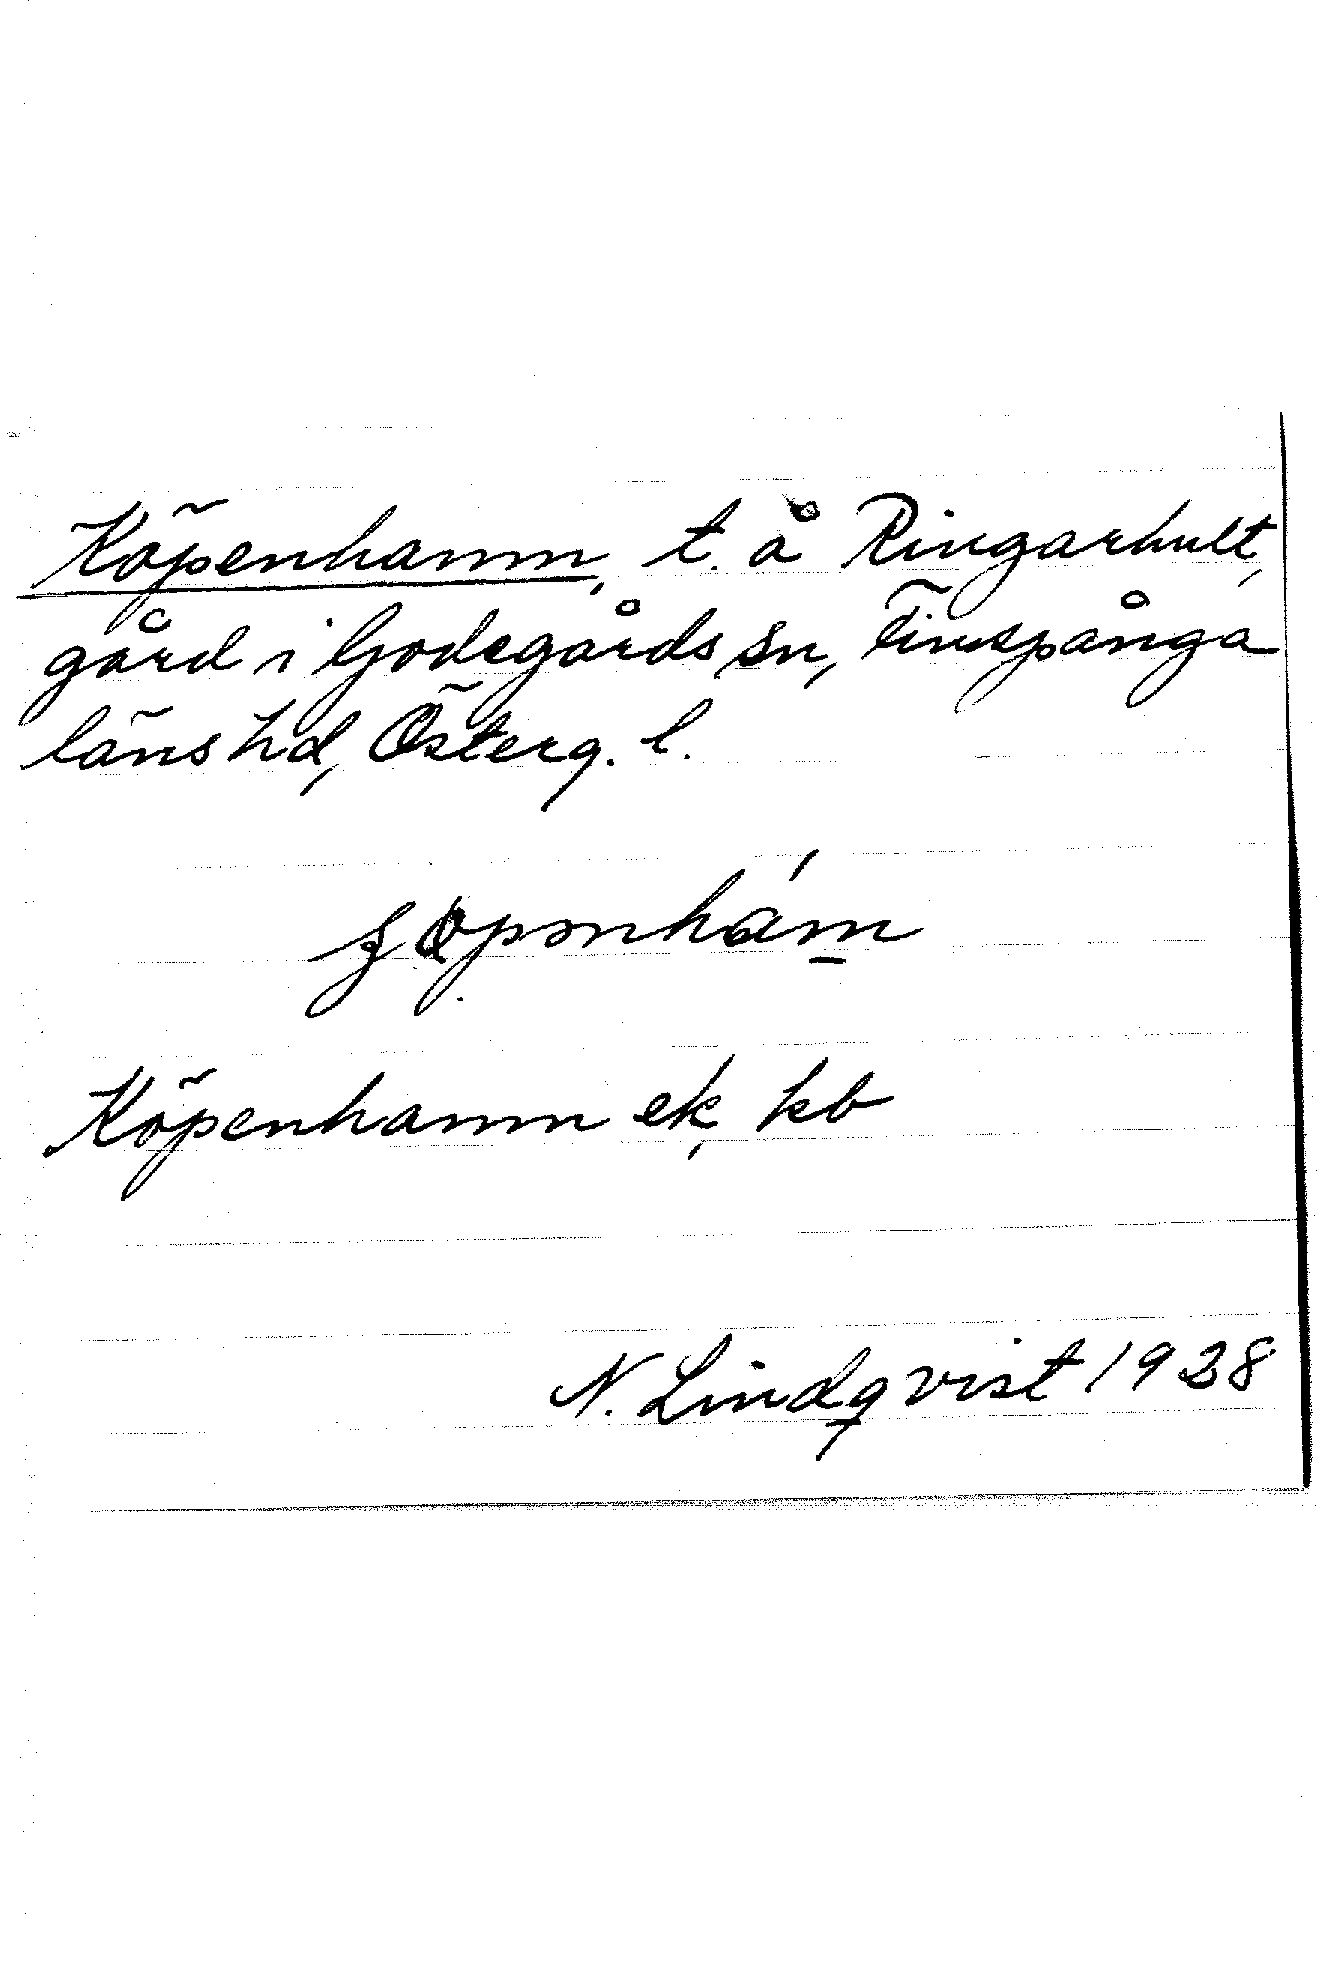 Köpenhamn, t. å Ringarhult,
gård i Godegårds sn, Finspånga
läns hd, Österg. l.
Köpenhamn ek, kb
N. Lindqvist 1928